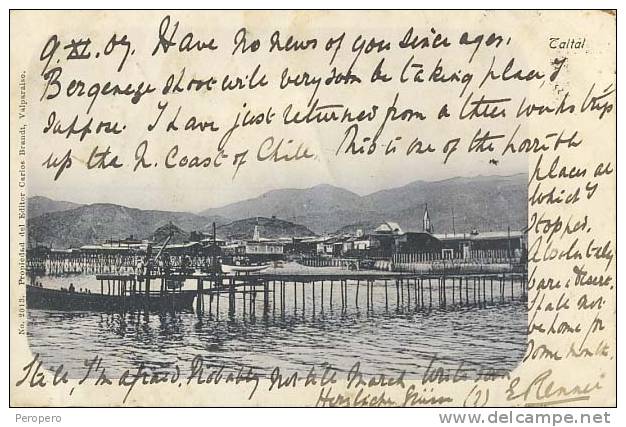 9. XI. 07. Have no news of you since ages.
Taltál
Bergenege shoot will very soon be taking place, I
suppose. I have just returned from a three weeks trip
up the N. Coast of Chile. This is one of the horrible
places at
which I
stopped.
Absolutely
bare & desert.
Shall not
be home for
some months
still, I'm afraid. Probably not till March. Write soon
Herzliche Grüsse (?) E Renner
No. 2013. Propiedad del Editor Carlos Brandt, Valparaiso.
Peropero
delcampe.net